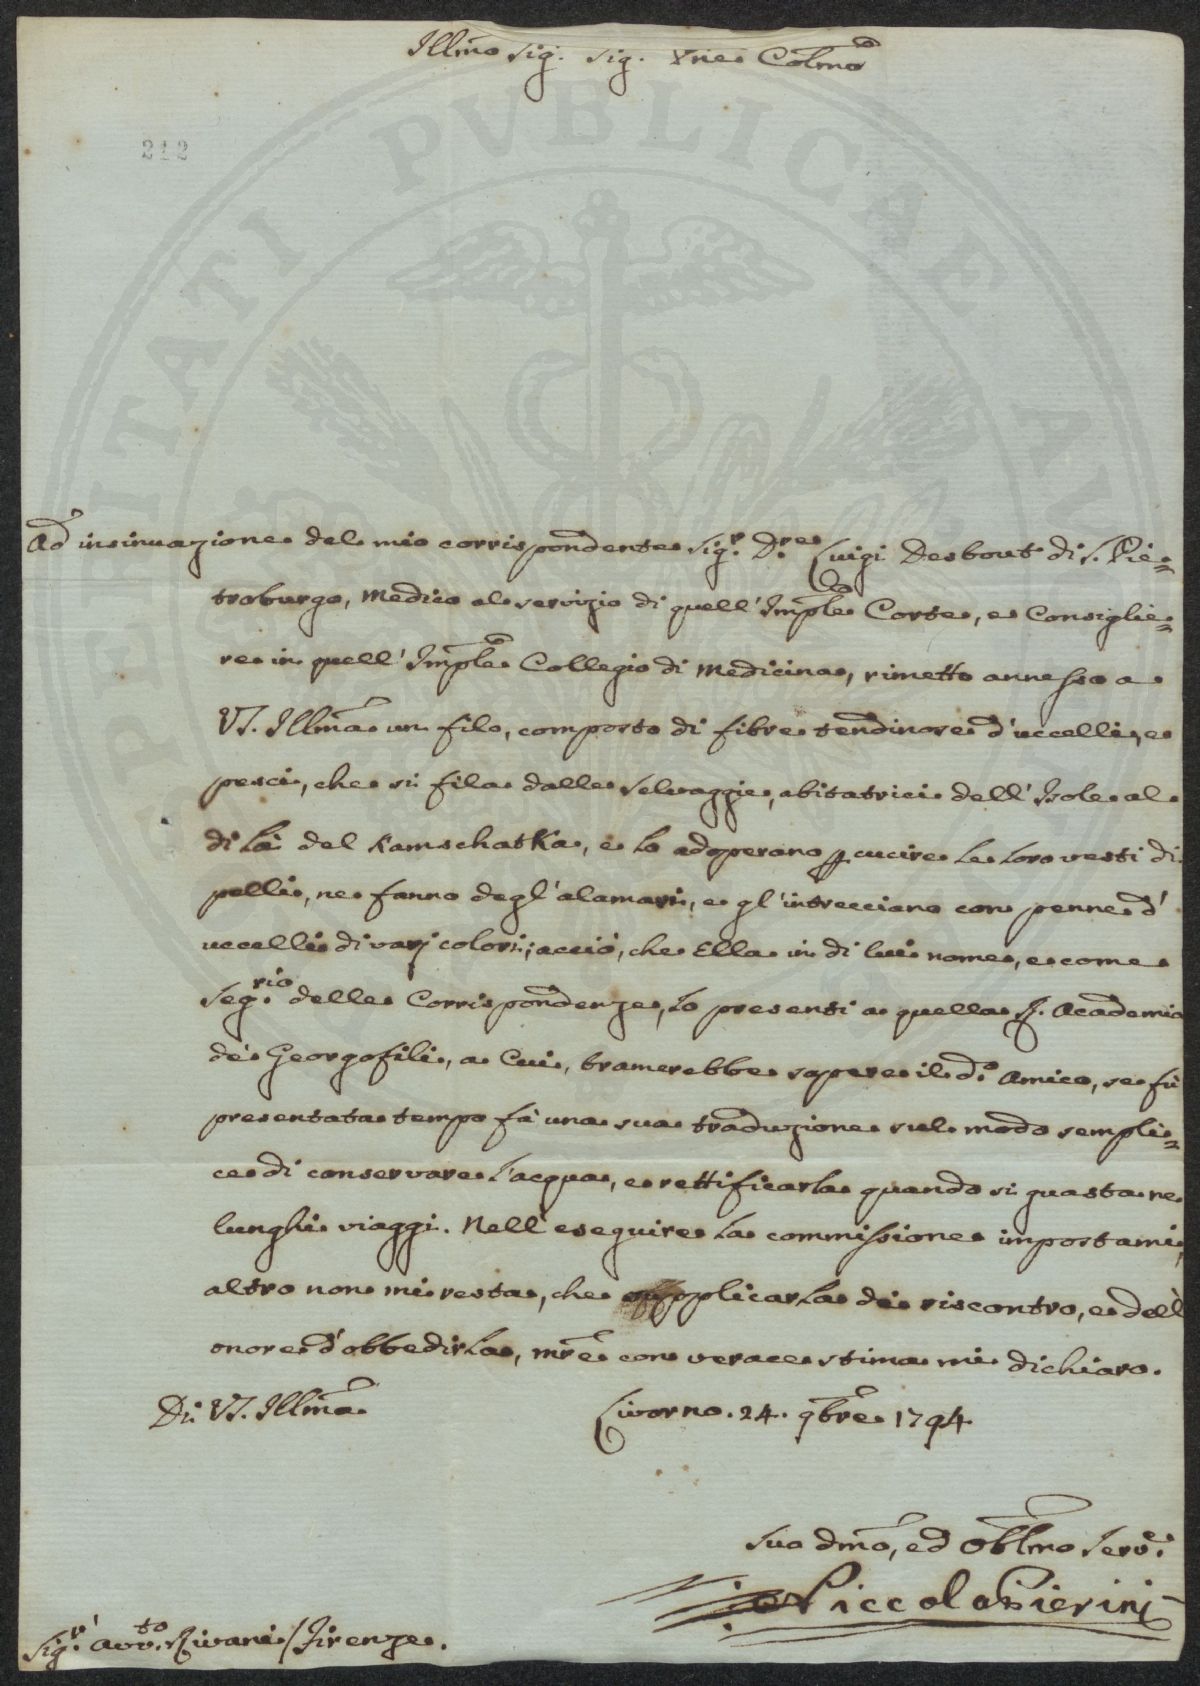 Illmo Sig. Sig. Prne Colmo
212
Ad insinuazione del mio corrispondente Sigr. Dre Luigi Desbout di S. Pie=
troburgo, Medico al servizio di quell' Imple Corte, e Consiglie=
re in quell' Imple Collegio di Medicina, rimetto annesso a
VS. Illma un filo, composto di fibre tendinose d'uccelli, e
pesci, che si fila dalle selvaggie, abitatrici dell' Isole al
di là del Kamschatka, e lo adoperano p cucire le loro vesti di
pelli, ne fanno degl' alamari, e gl' intrecciano con penne d'
uccelli di varj colori; acciò, che Ella in di lui nome, e come
Segrio delle Corrispondenze, lo presenti a quella R. Academia
de' Georgofili, a Cui, bramerebbe sapere il do. Amico, se fù
presentata tempo fà una sua traduzione sul modo sempli=
ce di conservare l'acqua, e rettificarla quando si guasta ne
lunghi viaggi. Nell' eseguire la commissione impostami,
altro non mi resta, che supplicarla di riscontro, e dell'
onore d'obbedirla, mre con verace stima mi dichiaro.
Di VS. Illma
Livorno. 24. 9bre 1794
Suo dmo, ed Obblmo Serve.
Niccola Pierini
Sigr. Avvto. Rivani / Firenze.
PVBLICAE